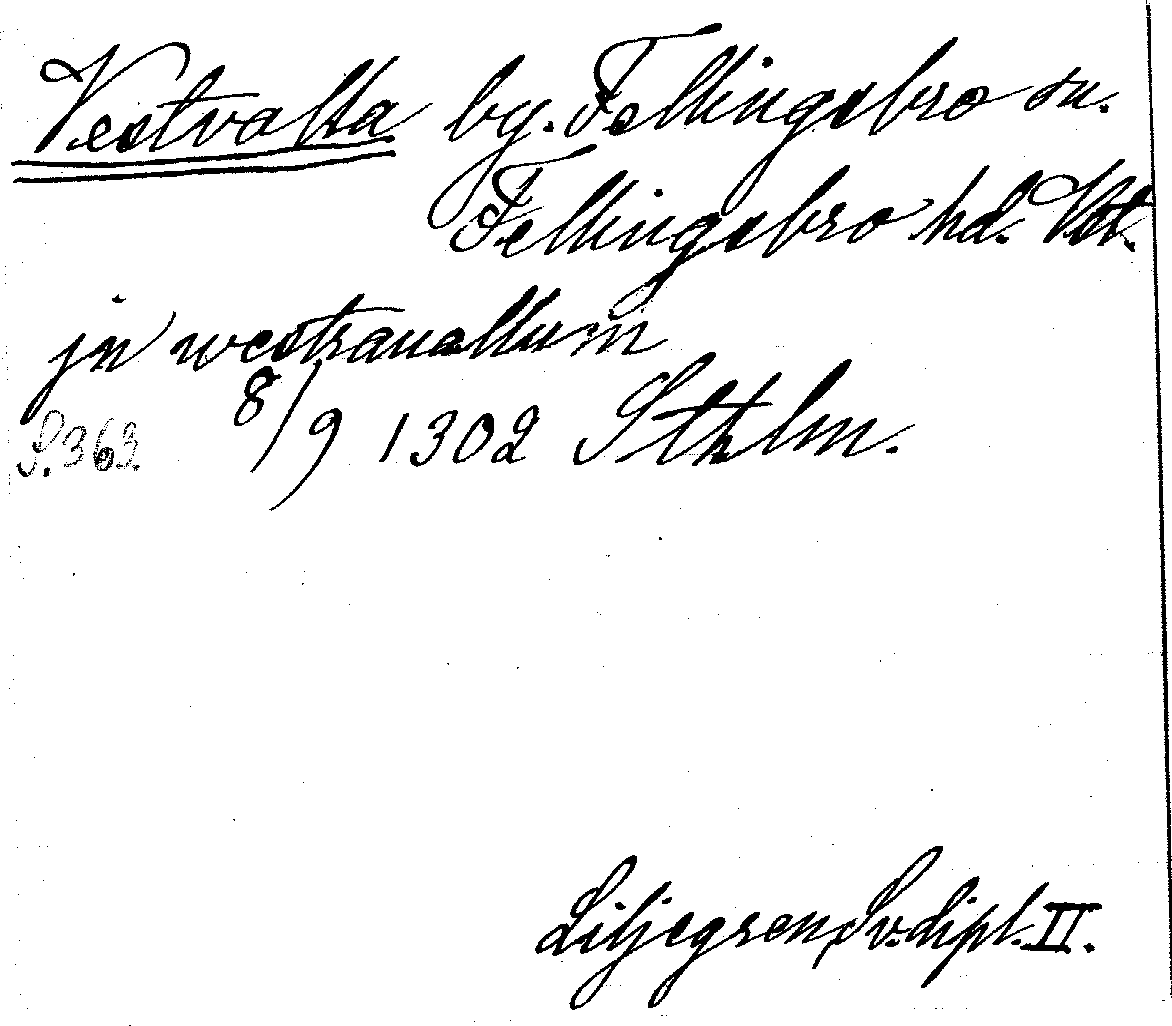 Vestvalla by. Fellingsbro sn.
Fellingsbro hd. Vstm.
jn westrauallum
S. 363. 8/9 1302 Sthlm.
Liljegren, Sv. dipl. II.